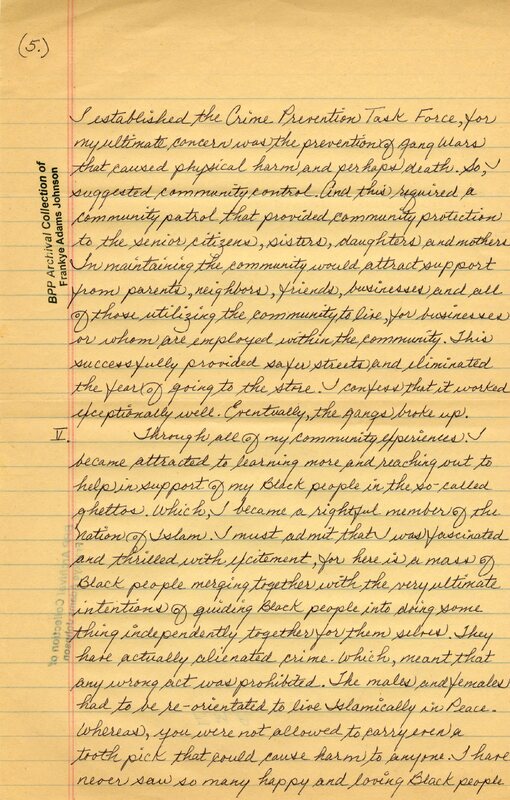 (5.)
BPP Archival Collection of
Frankye Adams Johnson
I established the Crime Prevention Task Force, for
my ultimate concern was the prevention of gang wars
that caused physical harm and perhaps death. So, I
suggested community control. And this required a
community patrol that provided community protection
to the senior citizens, sisters, daughters and mothers
In maintaining the community would attract support
from parents, neighbors, friends, businesses and all
of those utilizing the community to live, for businesses
or whom are employed within the community. This
successfully provided safer streets and eliminated
the fear of going to the store. I confess that it worked
exceptionally well. Eventually, the gangs broke up.
V. Through all of my community experiences. I
became attracted to learning more and reaching out to
help in support of my Black people in the so-called
ghettos. Which, I became a rightful member of the
Nation of Islam. I must admit that I was fascinated
and thrilled with excitement, for here is a mass of
Black people merging together with the very ultimate
intentions of guiding Black people into doing some
thing independently together for them selves. They
have actually alienated crime. Which, meant that
any wrong act was prohibited. The males and females
had to be re-orientated to live Islamically in Peace.
Whereas, you were not allowed to carry even a
tooth pick that could cause harm to anyone. I have
never saw so many happy and loving Black people